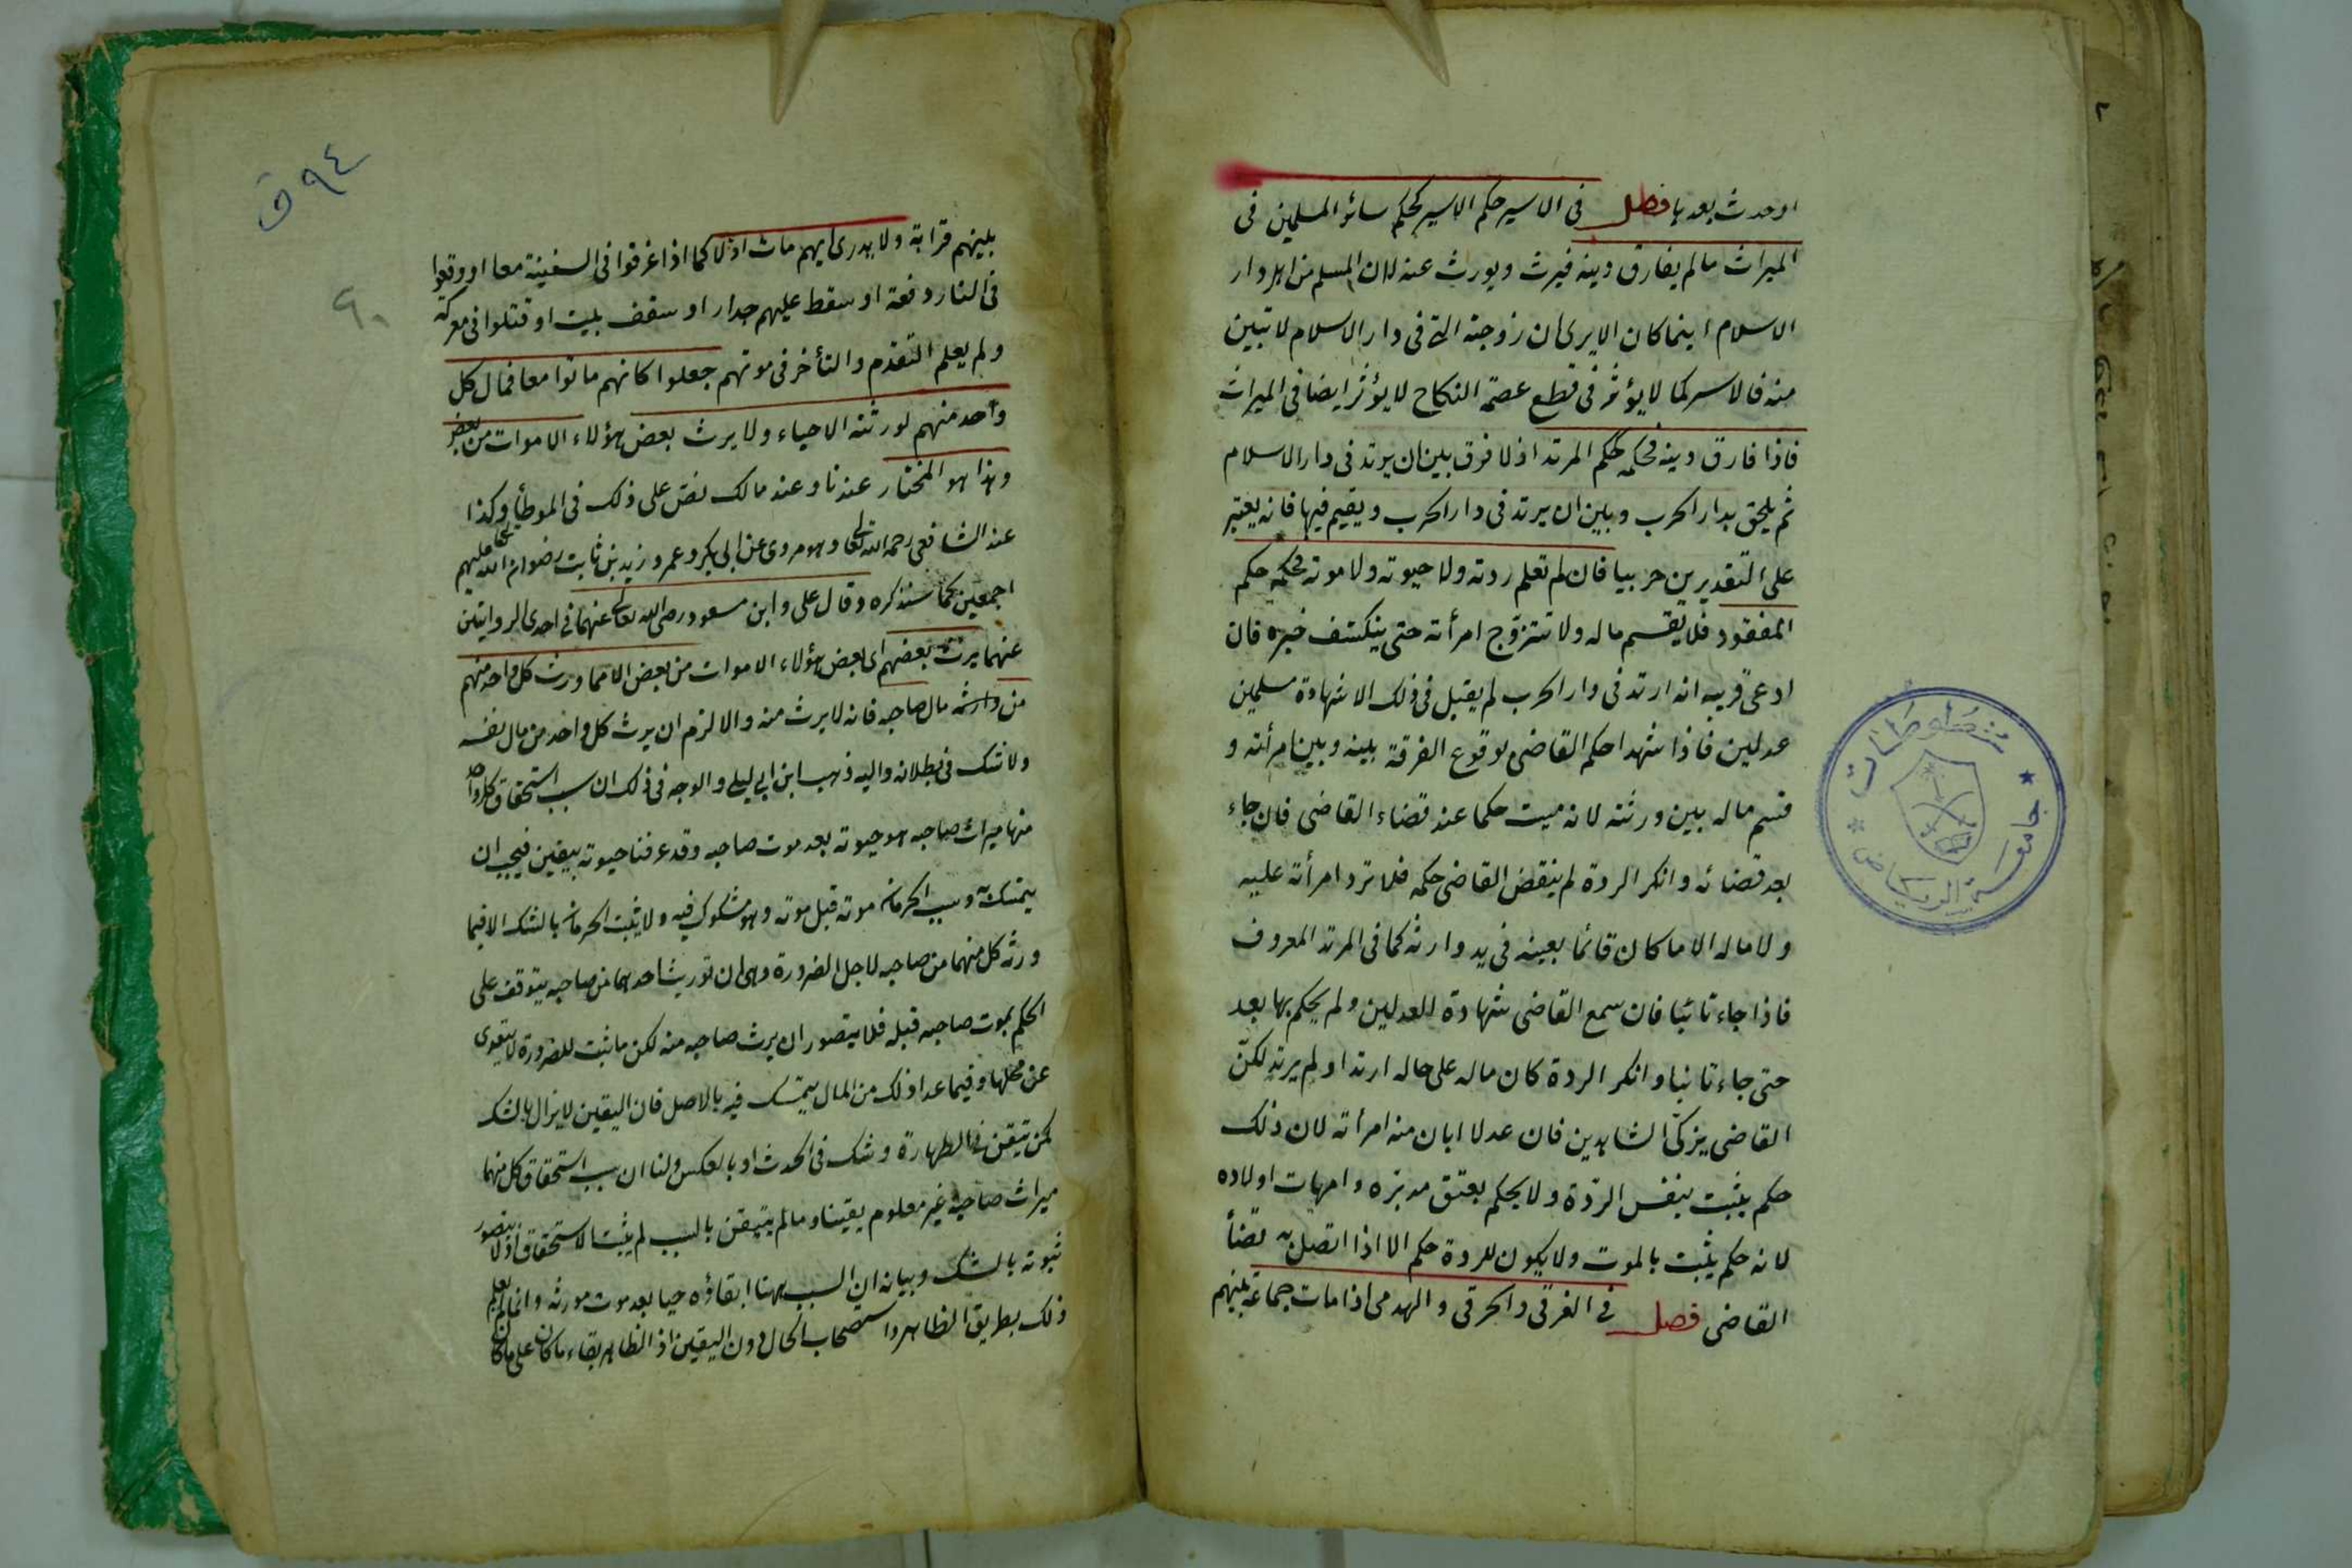 او حدث بعدها فصل في الاسير حكم الاسير كحكم سائر المسلمين في
الميراث ما لم يفارق دينه فيرث ويورث عنه لان المسلم من اهل دار
الاسلام اينما كان الا يرى ان زوجته التى في دار الاسلام لا تبين
منه فالاسر كما لا يؤثر في قطع عصمة النكاح لا يؤثر ايضا في الميراث
فاذا فارق دينه فحكمه حكم المرتد اذ لا فرق بين ان يرتد في دار الاسلام
ثم يلحق بدار الحرب وبين ان يرتد في دار الحرب ويقيم فيها فانه يعتبر
على التقديرين حربيا فان لم تعلم ردته ولا حيوته ولا موته فحكمه حكم
المفقود فلا يقسم ماله ولا تتزوج امرأته حتى ينكشف خبره فان
ادعى قريبه انه ارتد في دار الحرب لم يقبل في ذلك الا شهادة مسلمين
عدلين فاذا شهدا حكم القاضى بوقوع الفرقة بينه وبين امرأته و
قسم ماله بين ورثته لانه ميت حكما عند قضاء القاضى فان جاء
بعد قضائه وانكر الردة لم ينقض القاضى حكمه فلا ترد امرأته عليه
ولا ماله الا ما كان قائما بعينه في يد وارثه كما في المرتد المعروف
فاذا جاء تائبا فان سمع القاضى شهادة العدلين ولم يحكم بها بعد
حتى جاء تائبا وانكر الردة كان ماله على حاله ارتد او لم يرتد لكنّ
القاضى يزكّى الشاهدين فان عدلا ابان منه امرأته لان ذلك
حكم يثبت بنفس الردّة ولا يحكم بعتق مدبّره وامهات اولاده
لانه حكم يثبت بالموت ولا يكون للردة حكم الا اذا اتصل به قضأ
القاضى فصل في الغرقى والحرقى والهدمى اذا مات جماعة بينهم
ق ٩٤
٩٠
بينهم قرابة ولا يدرى ايهم مات اولا كما اذا غرقوا في السفينة معا او وقعوا
في النار دفعة او سقط عليهم جدار او سقف بيت او قتلوا في معركة
ولم يعلم التقدم والتأخر في موتهم جعلوا كانهم ماتوا معا فمال كل
واحد منهم لورثته الاحياء ولا يرث بعض هؤلاء الاموات من بعض
وهذا هو المختار عندنا وعند مالك نص على ذلك في الموطأ وكذا
عند الشافعى رحمه الله تعالى وهو مروى عن ابى بكر وعمر وزيد بن ثابت رضوان الله تعالى عليهم
اجمعين كما سنذكره وقال على وابن مسعود رضى الله تعالى عنهما في احدى الروايتين
عنهما يرث بعضهم اى بعض هؤلاء الاموات من بعض الا مما ورث كل واحد منهم
من مال صاحبه فانه لا يرث منه والا لزم ان يرث كل واحد من مال نفسه
ولا شك في بطلانه واليه ذهب ابن ابى ليلى والوجه في ذلك ان سبب استحقاق كل واحد
منها ميراث صاحبه هو حيوته بعد موت صاحبه وقد عرفنا حيوته بيقين فيجب ان
يتمسك به وسبب الحرمان موته قبل موته وهو مشكوك فيه ولا يثبت الحرمان بالشك الا فيما
ورثه كل منهما من صاحبه لاجل الضرورة وهى ان توريث احدهما من صاحبه يتوقف على
الحكم بموت صاحبه قبله فلا يتصور ان يرث صاحبه منه لكن ما ثبت للضرورة لا يتعدى
عن محلها وفيما عدا ذلك من المال يتمسك فيه بالاصل فان اليقين لا يزال بالشك
كمن تيقن في الطهارة وشك في الحدث او بالعكس ولنا ان سبب استحقاق كل منهما
ميراث صاحبه غير معلوم يقينا وما لم يتيقن بالسبب لم يثبت الاستحقاق اذ لا يتصور
ثبوته بالشك وبيانه ان السبب ههنا ابقاؤه حيا بعد موت مورثه وانما لم يعلم
ذلك بطريق الظاهر واستصحاب الحال دون اليقين اذ الظاهر بقاء ما كان على ما كان
مخطوطات
جامعة الرياض